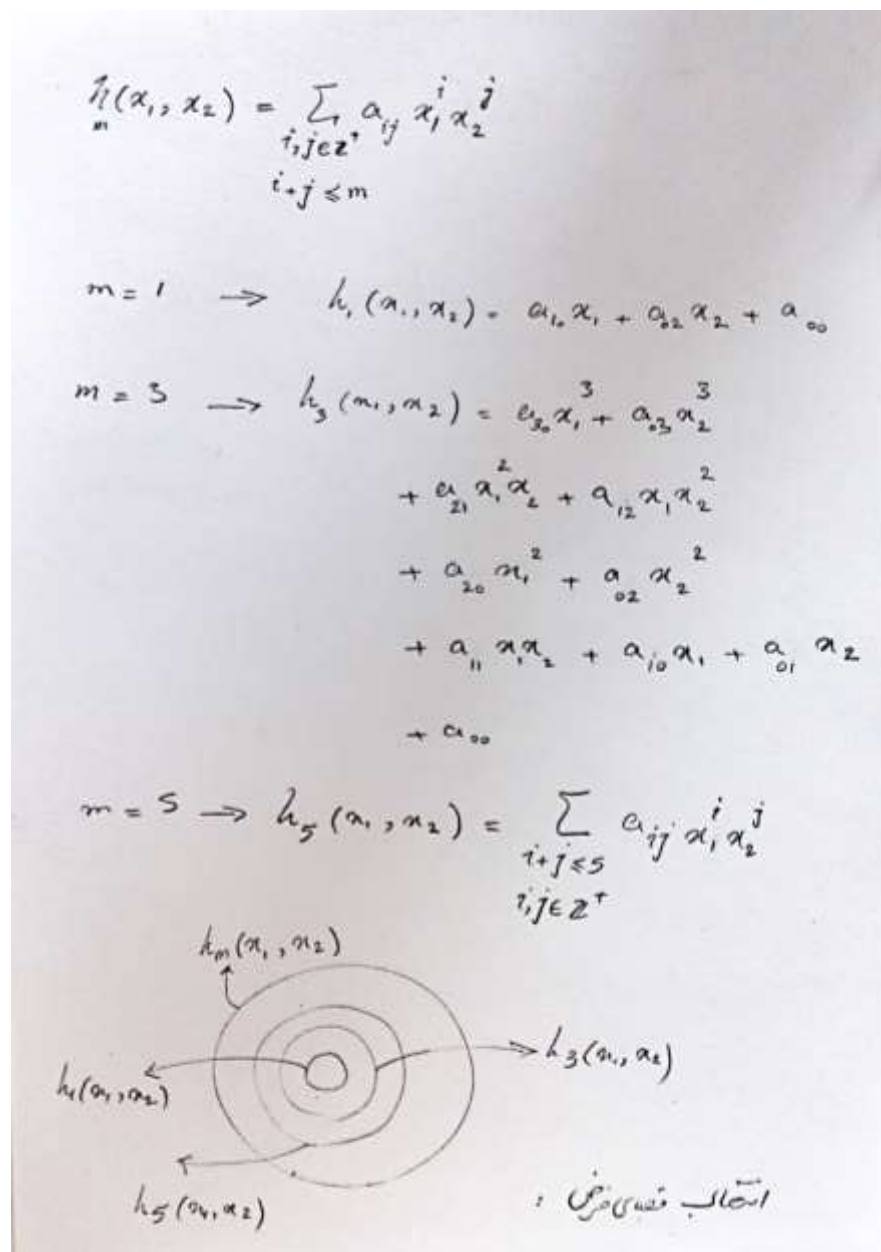 h_m(x₁, x₂) = Σ_{i,j∈ℤ⁺, i+j≤m} a_{ij} x₁^i x₂^j
m = 1 → h₁(x₁, x₂) = a₁₀ x₁ + a₀₂ x₂ + a₀₀
m = 3 → h₃(x₁, x₂) = a₃₀ x₁³ + a₀₃ x₂³
+ a₂₁ x₁² x₂ + a₁₂ x₁ x₂²
+ a₂₀ x₁² + a₀₂ x₂²
+ a₁₁ x₁ x₂ + a₁₀ x₁ + a₀₁ x₂
+ a₀₀
m = 5 → h₅(x₁, x₂) = Σ_{i+j≤5, i,j∈ℤ⁺} a_{ij} x₁^i x₂^j
h_m(x₁, x₂)
h₃(x₁, x₂)
h₁(x₁, x₂)
h₅(x₁, x₂)
انتخاب فضای فرض :